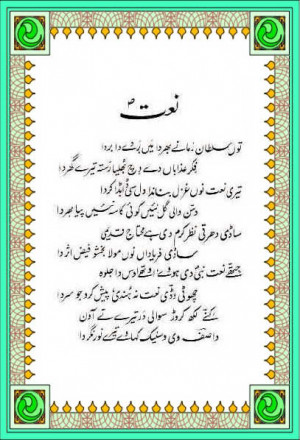 نعت ص
توں سلطان زمانے بھر دا میں بردے دا بردا
فکر عذاباں دے وچ بھلیا رستہ تیرے گھر دا
تیری نعت نوں غزل بناندا دل سی ایڈا کردا
دسن والی گل نئیں کوئی کاسہ نئیں پیا بھردا
ساڈی دھرتی نظر کرم دی ہے محتاج قدیمی
ساڈی فریاداں نوں مولا بخشو فیض اثر دا
جتھے نعت نبی دی ہوئے اوتھے اوس دا جلوہ
چھوٹی وڈی نعت نہ ہندی پیش کرو جو سردا
گنے لکھ کروڑ سوالی در تیرے تے آون
واصف وی وسنیک کہائے تیرے نور نگر دا